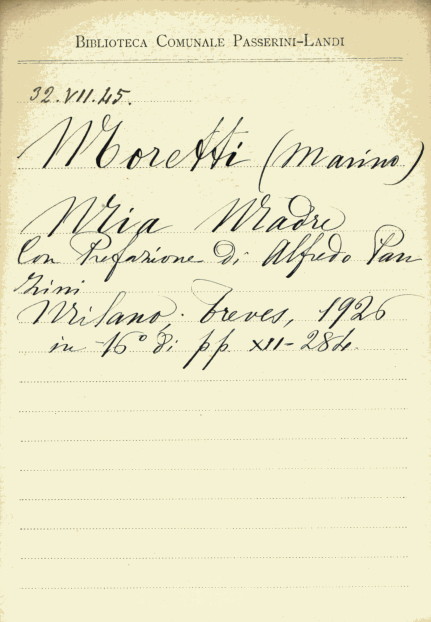 BIBLIOTECA COMUNALE PASSERINI-LANDI
32.VII.45.
Moretti (Marino)
Mia Madre
Con Prefazione di Alfredo Pan
zini
Milano, Treves, 1926
in -16° di pp. XII-284.